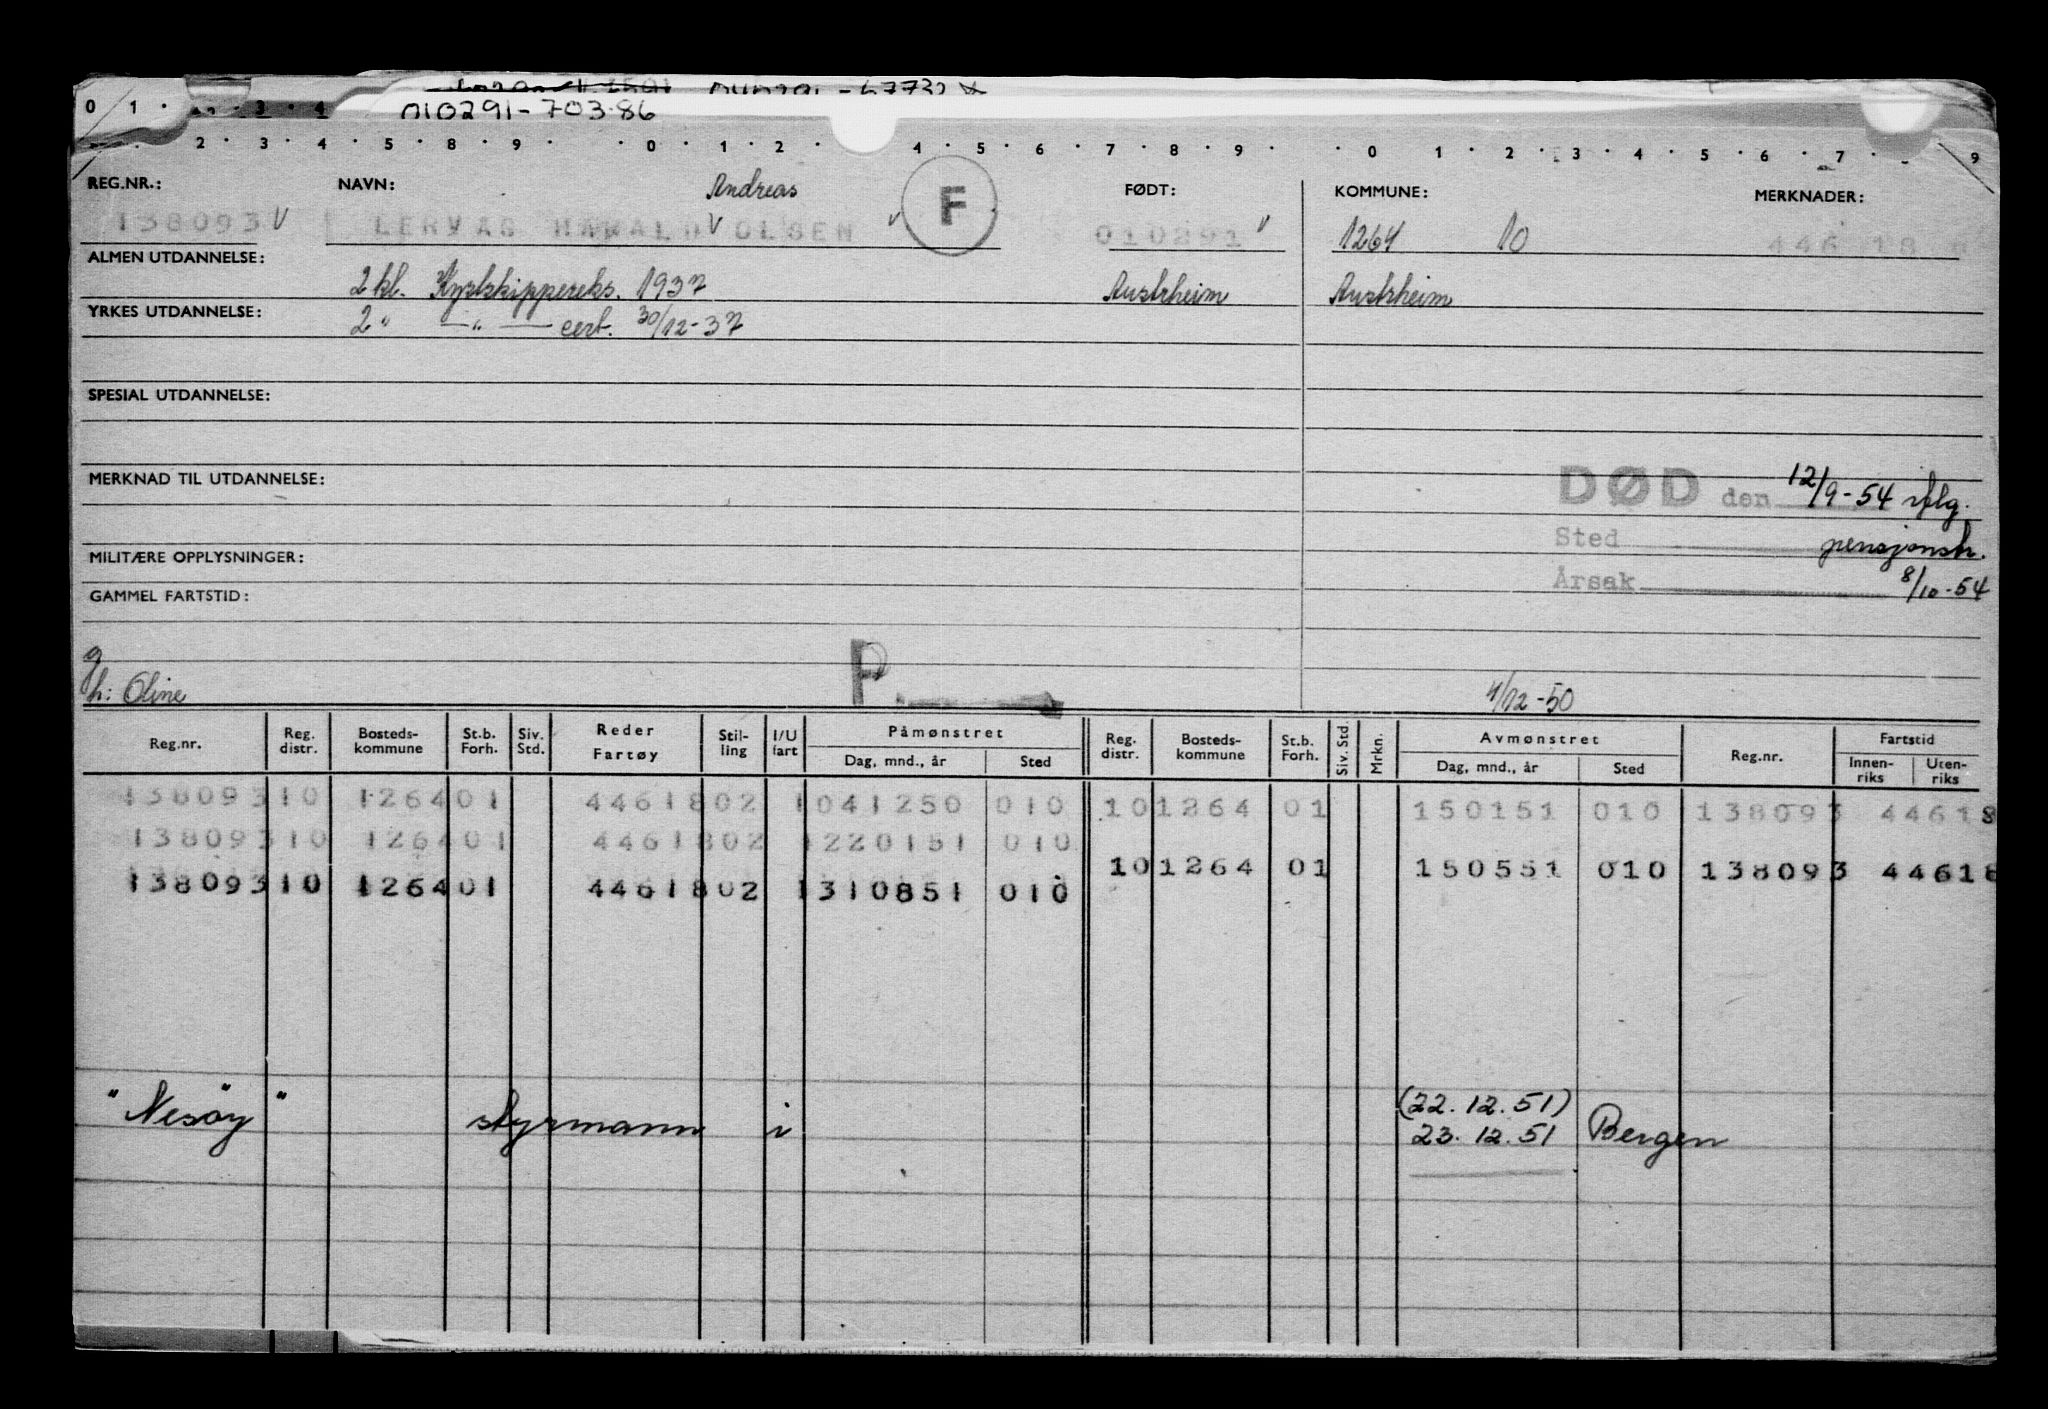 010291-703.86
0 1 · 3 4
2 · 3 · 4 · 5 · 8 · 9 · · 0 · 1 · 2 · 4 · 5 · 6 · 7 · 8 · 9 · · 0 1 · 2 · 3 · 4 · 5 · 6 · 7 · 9
REG.NR.: NAVN: Andreas F FØDT: KOMMUNE: MERKNADER:
138093 V LERVAS HARALD V OLSEN V 010291 V 1264 10 446 18
ALMEN UTDANNELSE: 2 kl. Kystskippereks. 1937 Austrheim Austrheim
YRKES UTDANNELSE: 2 " —"— cert. 30/12-37
SPESIAL UTDANNELSE:
MERKNAD TIL UTDANNELSE: DØD den 12/9-54 iflg.
MILITÆRE OPPLYSNINGER: Sted pensjonstr.
GAMMEL FARTSTID: Årsak 8/10-54
g
h: Oline P. 4/12-50
Reg.nr. Reg. distr. Bosteds-kommune St.b. Forh. Siv. Std. Reder Fartøy Stil-ling I/U fart Påmønstret Dag, mnd., år Sted Reg. distr. Bosteds-kommune St.b. Forh. Siv. Std. Mrkn. Avmønstret Dag, mnd., år Sted Reg.nr. Fartstid Innen-riks Uten-riks
138093 10 1264 01 44618 02 1 041250 010 10 1264 01 150151 010 138093 44618
138093 10 1264 01 44618 02 1 220151 010
10 1264 01 150551 010 138093 44618
138093 10 1264 01 44618 02 1 310851 010
"Nesøy" styrmann i (22.12.51)
23.12.51 Bergen